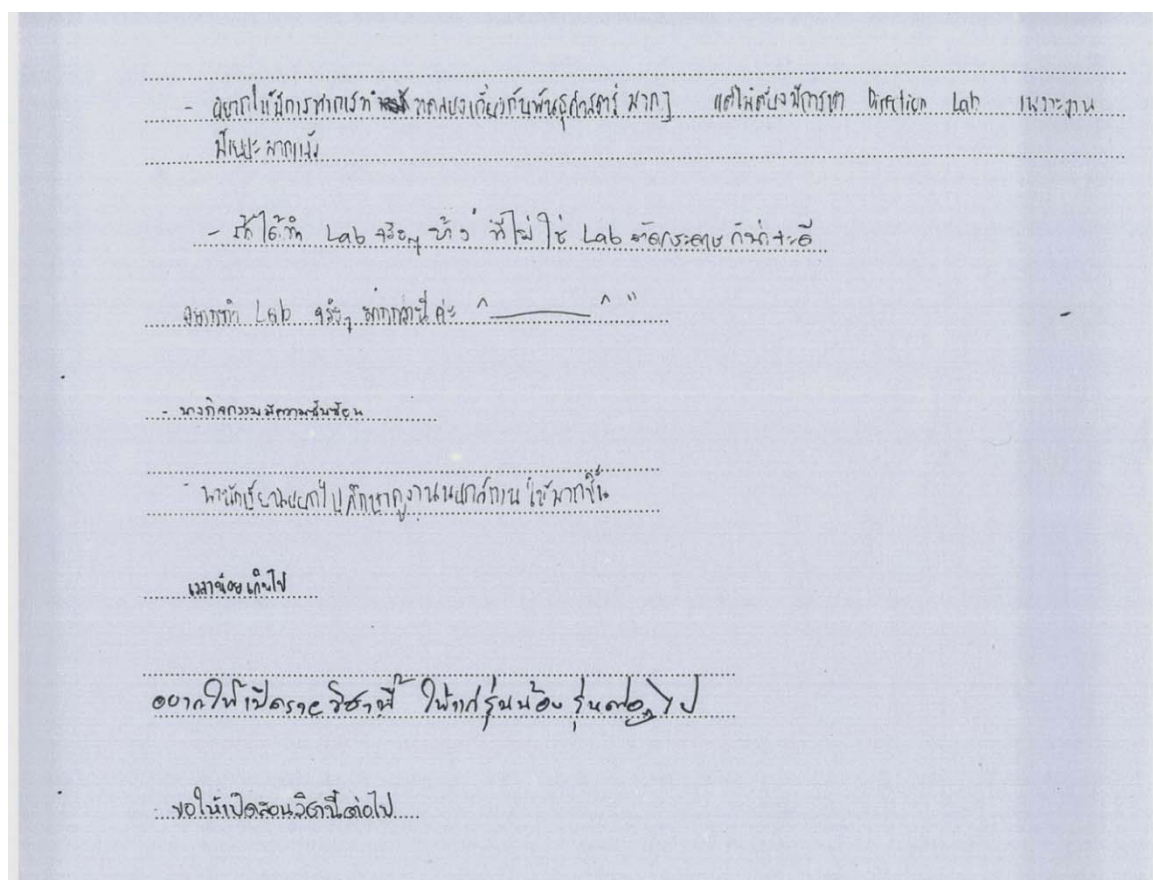 - อยากให้มีการทำการทำ ทดลองเกี่ยวกับพันธุศาสตร์ มากๆ แต่ไม่ต้องมีการทำ Direction Lab เพราะงาน
มีเยอะมากแล้ว
- ถ้าได้ทำ Lab จริงๆ บ้าง ที่ไม่ใช่ Lab ตัดกระดาษ ก็น่าจะดี
อยากทำ Lab จริงๆ มากกว่านี้ค่ะ ^_____^"
- บางกิจกรรมมีความซับซ้อน
- พานักเรียนออกไปศึกษาดูงานนอกสถานที่ให้มากขึ้น
เวลาน้อยเกินไป
อยากให้เปิดรายวิชานี้ ให้แก่รุ่นน้อง รุ่นต่อๆ ไป
- ขอให้เปิดสอนวิชานี้ต่อไป